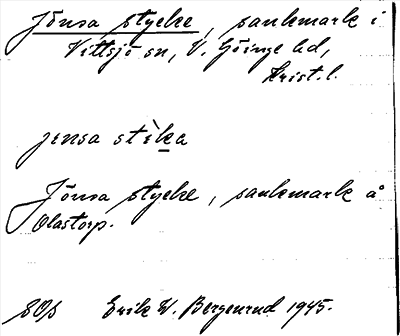 Jönsa stycke, sankmark i
Vittsjö sn, V. Göinge hd,
Krist. l.
jensa stìka
Jönsa stycke, sankmark å
Olastorp.
Erik W. Bergenrud 1945.